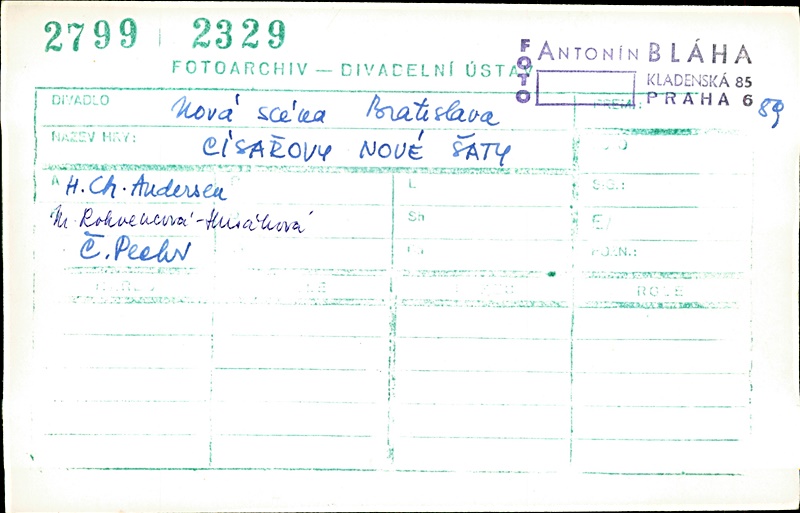 2799 2329
FOTOARCHIV — DIVADELNÍ ÚSTAV
FOTO ANTONÍN BLÁHA
KLADENSKÁ 85
PRAHA 6
DIVADLO Nová scéna Bratislava PREM.: 89
NÁZEV HRY: CÍSAŘOVY NOVÉ ŠATY
A H. Ch. Andersen L SIG.:
Sh
Č. POZN.:
ROLE ROLE